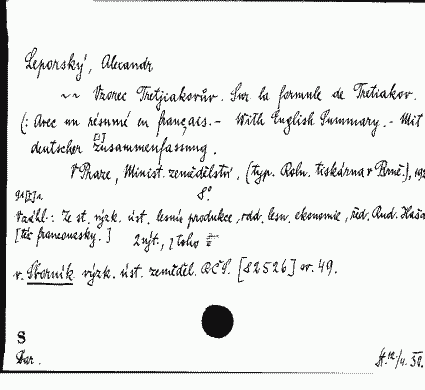 Leporský, Alexandr
~~ Vzorec Tretjiakovův. Sur la formule de Tretiakov.
(: Avec un résumé en français. – With English Summary. – Mit
deutscher Zusammenfassung.
V Praze, Minist. zemědělství, (typ. Roln. tiskárna v Brně.), 192
8°.
Vzáhl.: Ze st. výzk. úst. lesnic produkce, odd. lesn. ekonomie, řed. Rud. Haša
[též francouzsky.] 2 výt., z toho
v. Sborník výzk. úst. zeměděl. RČS. [S2526] sv. 49.
S
Dar.